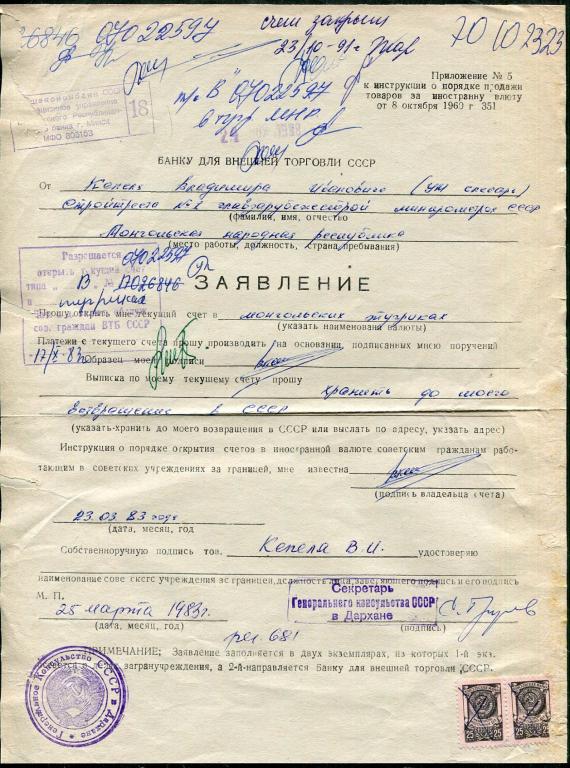 36846 07022597
счет закрыт
23/10-91г
70 10 2323
тр. "В" 07022597
в тугр МНР
18
МФО 800153
Приложение № 5
к инструкции о порядке продажи
товаров за иностранну валюту
от 8 октября 1969 г 351
БАНКУ ДЛЯ ВНЕШНЕЙ ТОРГОВЛИ СССР
От Владимира Ивановича
Стройтреста
(фамилия, имя, отчество
Монгольская народная республика
(место работы, должность, страна, пребывания)
Разрешается 07022597
открыть текущий счет
типа "В" № 17026846
ЗАЯВЛЕНИЕ
Прошу открыть мне текущий счет в монгольских тугриках
(указать наименование валюты)
сов. граждан ВТБ СССР
17/X-83
Платежи с текущего счета прошу производить на основании, подписанных мною поручений
Образец моей подписи
Выписка по моему текущему счету прошу хранить до моего
возвращения в СССР
(указать-хранить до моего возвращения в СССР или выслать по адресу, указать адрес)
Инструкция о порядке открытия счетов в иностранной валюте советским гражданам рабо-
тающим в советских учреждениях за границей, мне известна
(подпись владельца счета)
23.03.83 года
(дата, месяц, год
Собственноручную подпись тов. Кепеля В.И. удостоверяю
наименование советского учреждения за границей, должность лица, заверяющего подпись и его подпись
М. П.
Секретарь
Генерального консульства СССР
в Дархане
25 марта 1983г.
(дата, месяц, год)
(подпись)
рег 681
ПРИМЕЧАНИЕ: Заявление заполняется в двух экземплярах, из которых 1-й экз.
загранучреждения, а 2-й-направляется Банку для внешней торговли СССР.
Генеральное Консульство СССР в Дархане
25 25 25 25